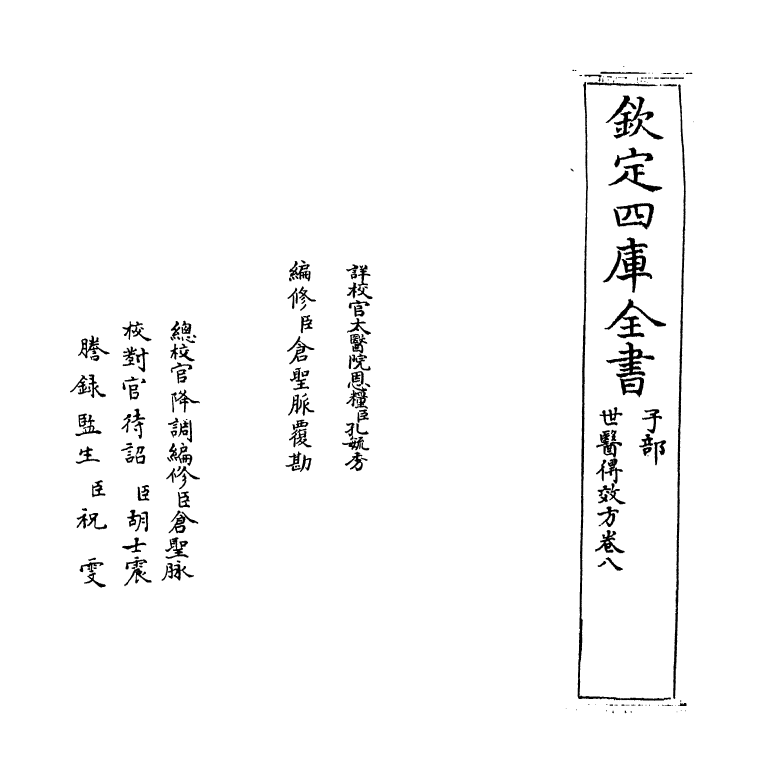 欽定四庫全書
子部
世醫得效方卷八
詳校官太醫院恩糧臣孔毓秀
編修臣倉聖脈覆勘
總校官降調編修臣倉聖脉
校對官待詔臣胡士震
謄錄監生臣祝雯